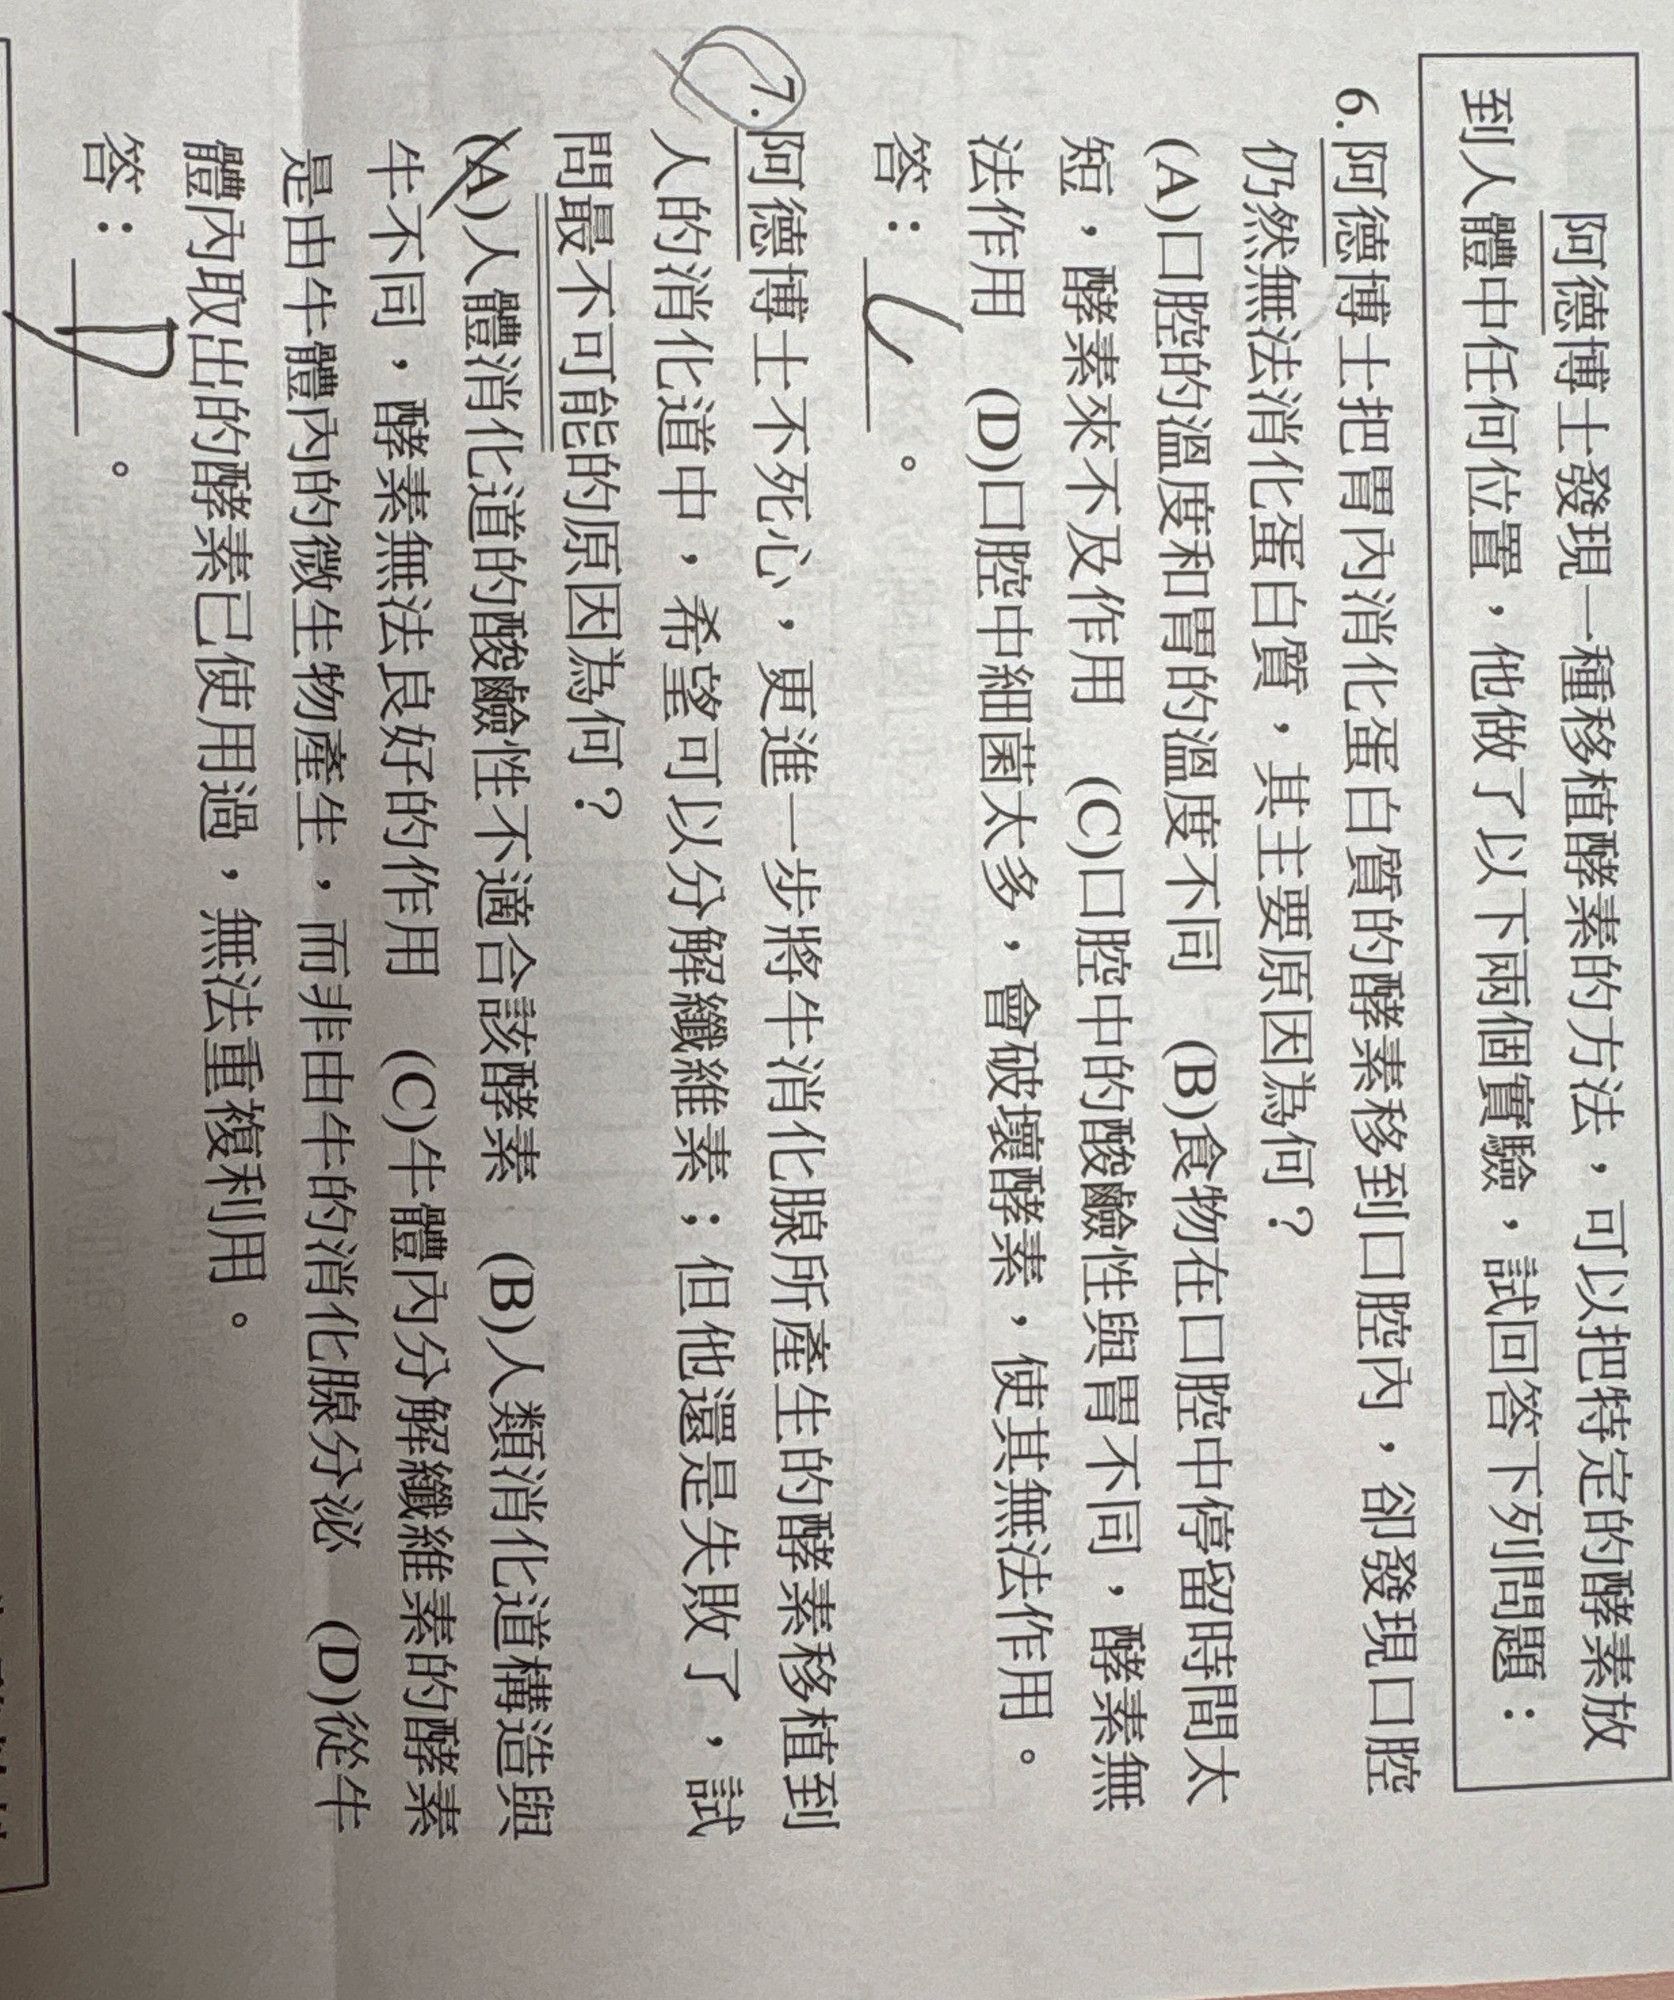 阿德博士發現一種移植酵素的方法，可以把特定的酵素放
到人體中任何位置，他做了以下兩個實驗，試回答下列問題：
6.阿德博士把胃內消化蛋白質的酵素移到口腔內，卻發現口腔
仍然無法消化蛋白質，其主要原因為何？
(A)口腔的溫度和胃的溫度不同　(B)食物在口腔中停留時間太
短，酵素來不及作用　(C)口腔中的酸鹼性與胃不同，酵素無
法作用　(D)口腔中細菌太多，會破壞酵素，使其無法作用。
答：C。
7.阿德博士不死心，更進一步將牛消化腺所產生的酵素移植到
人的消化道中，希望可以分解纖維素；但他還是失敗了，試
問最不可能的原因為何？
(A)人體消化道的酸鹼性不適合該酵素　(B)人類消化道構造與
牛不同，酵素無法良好的作用　(C)牛體內分解纖維素的酵素
是由牛體內的微生物產生，而非由牛的消化腺分泌　(D)從牛
體內取出的酵素已使用過，無法重複利用。
答：D。